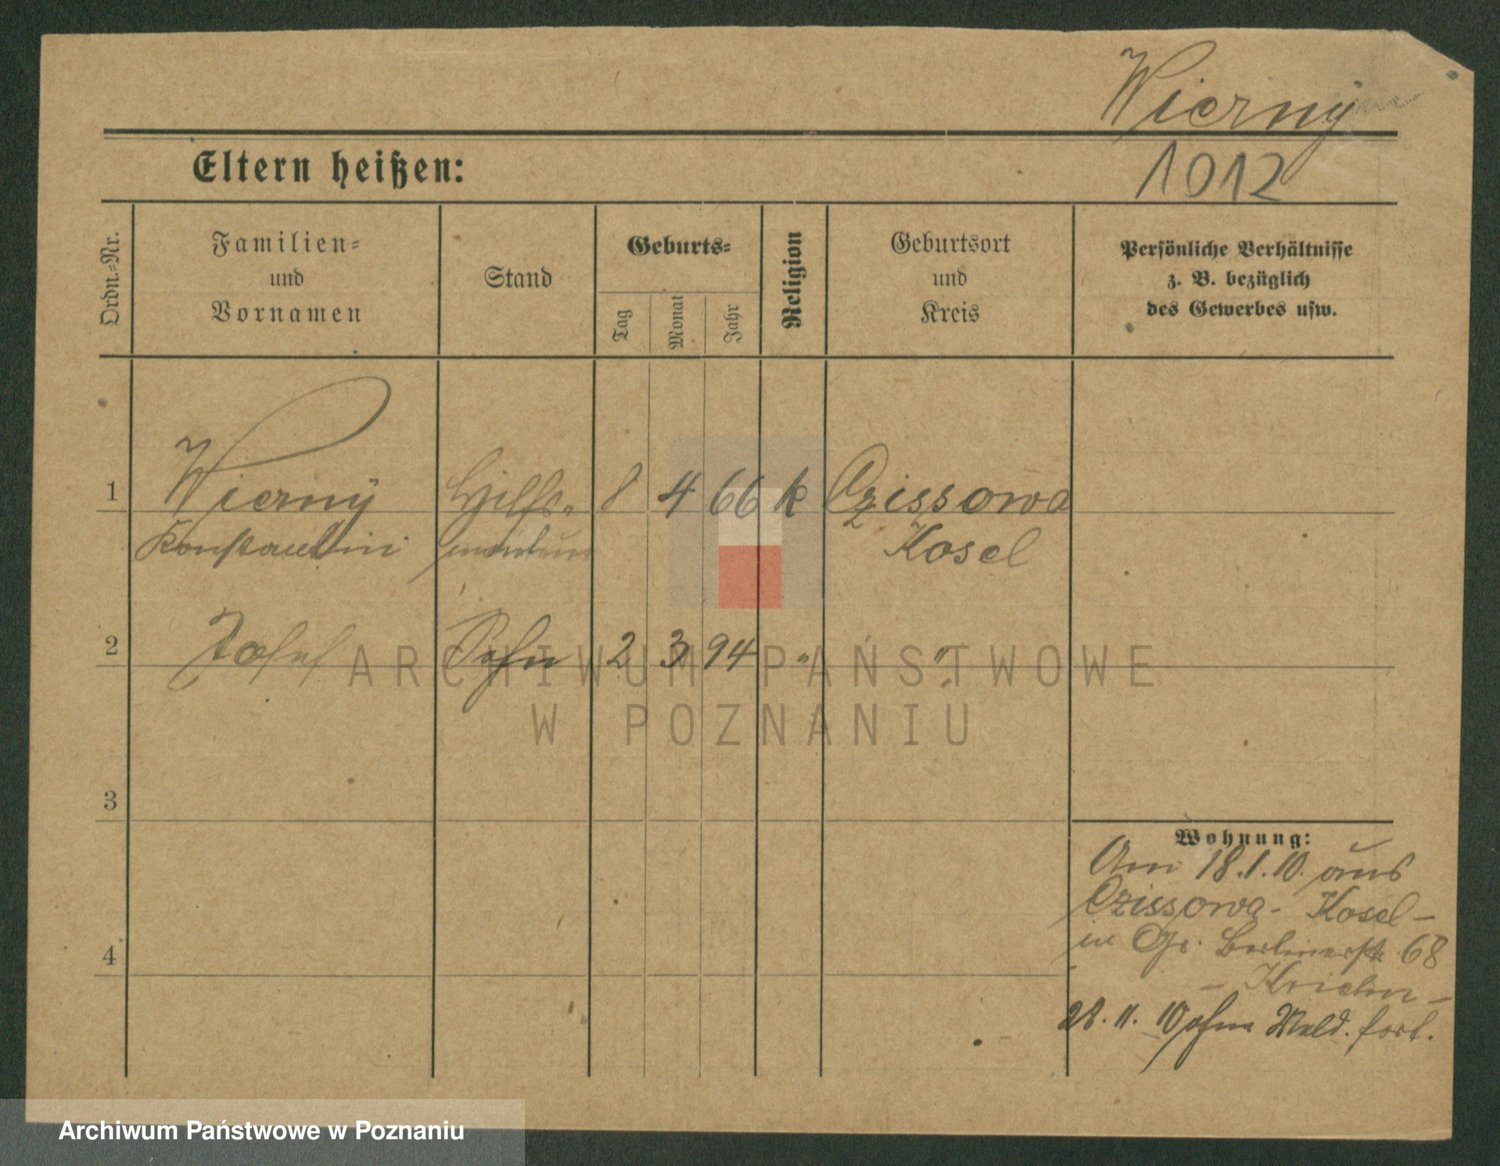 Wierny
Eltern heißen:
1012
Ordn.-Nr.
Familien-
und
Vornamen
Stand
Geburts-
Tag
Monat
Jahr
Religion
Geburtsort
und
Kreis
Persönliche Verhältnisse
z. B. bezüglich
des Gewerbes usw.
1
Wierny
Hilfs-
8 4 66 k Czissowa
Konstantin
monteur
Kosel
2 Josef Sohn 2 3 94 " "
ARCHIWUM PAŃSTWOWE
W POZNANIU
3
Wohnung:
Am 18.1.10. aus
Czissowa- Kosel-
in Gr. Berlinerstr. 68
4
28.11.10 ohne Meld. fort.
Archiwum Państwowe w Poznaniu